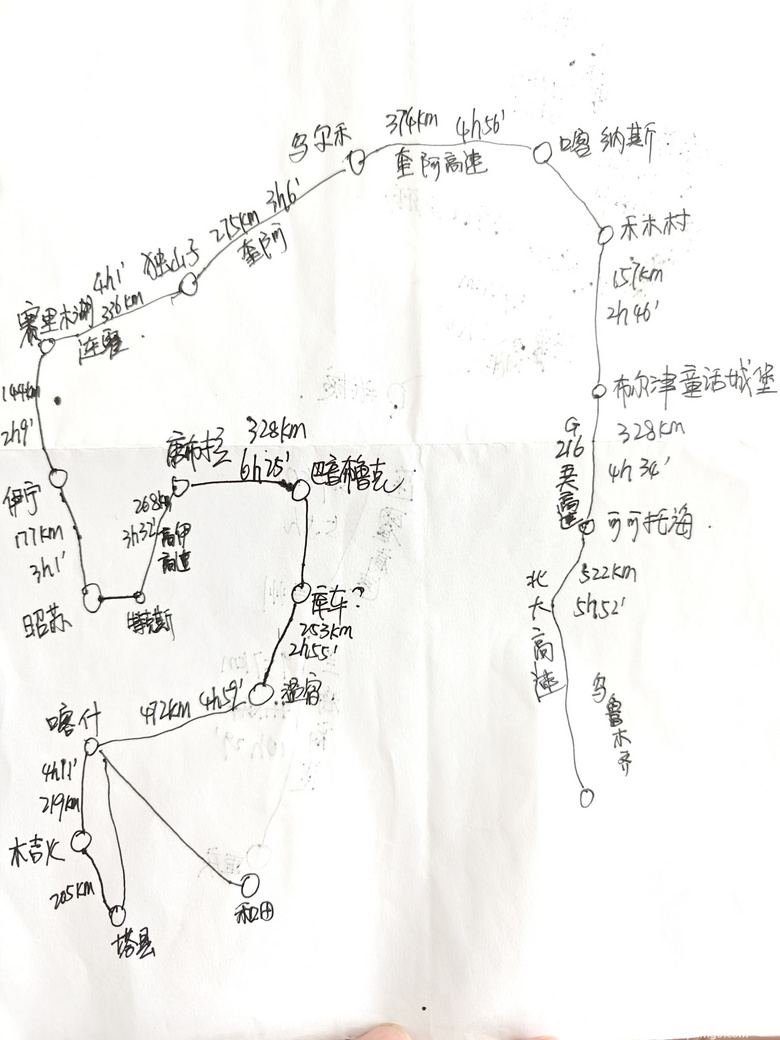 乌尔禾
374km 4h56'
奎阿高速
喀纳斯
禾木村
157km
2h46'
布尔津童话城堡
328km
4h34'
G216
高速
可可托海
522km
5h52'
北大高速
乌鲁木齐
独山子
275km 3h6'
奎阿
赛里木湖
4h1'
336km
连霍
144km
2h9'
伊宁
177km
3h1'
昭苏
特克斯
268km
3h32'
高速
唐布拉
328km
6h25'
巴音布鲁克
库车?
253km
2h55'
温宿
492km 4h59'
喀什
4h11'
219km
木吉火
205km
塔县
和田